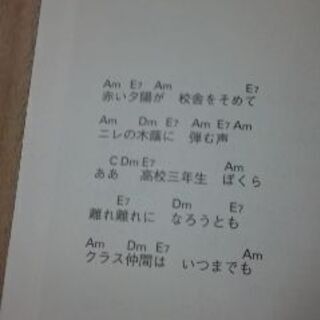 Am E7 Am E7
赤い夕陽が 校舎をそめて
Am Dm E7 Am E7 Am
ニレの木蔭に 弾む声
C Dm E7 Am
ああ 高校三年生 ぼくら
E7 Dm E7
離れ離れに なろうとも
Am Dm E7 Am
クラス仲間は いつまでも